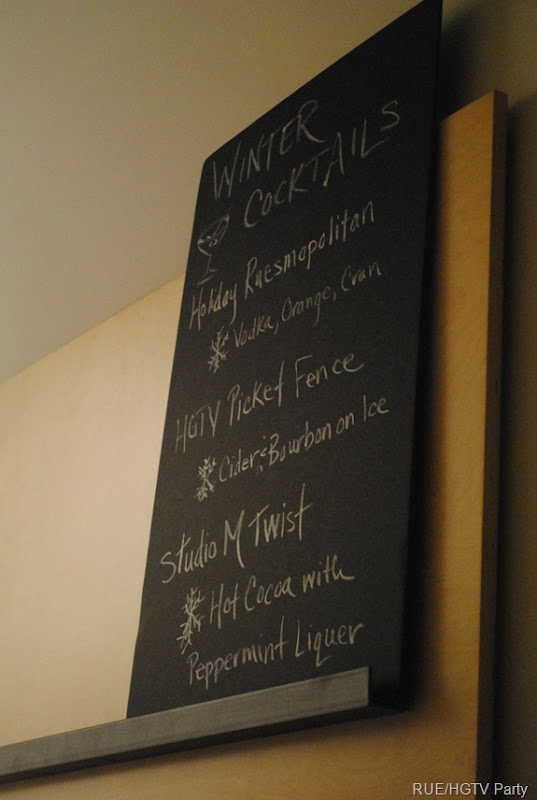 WINTER
COCKTAILS
Holiday Ruesmopolitan
Vodka, Orange, Cran
HGTV Picket Fence
Cider & Bourbon on Ice
Studio M Twist
Hot Cocoa with
Peppermint Liquer
RUE/HGTV Party